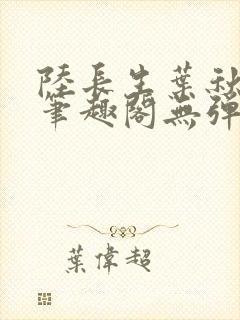 陸長生葉秋
筆趣閣無彈
葉偉超